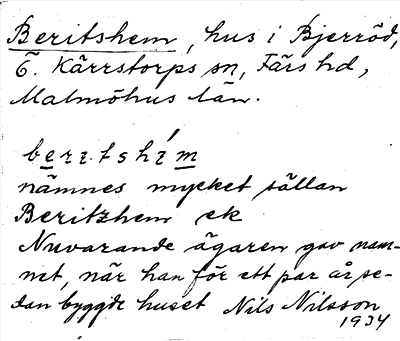 Beritshem, hus i Bjerröd,
Ö. Kärrstorps sn, Färs hd,
Malmöhus län.
nämnes mycket sällan
Beritzhem ek
Nuvarande ägaren gav nam-
net, när han för ett par år se-
dan byggde huset Nils Nilsson
1934